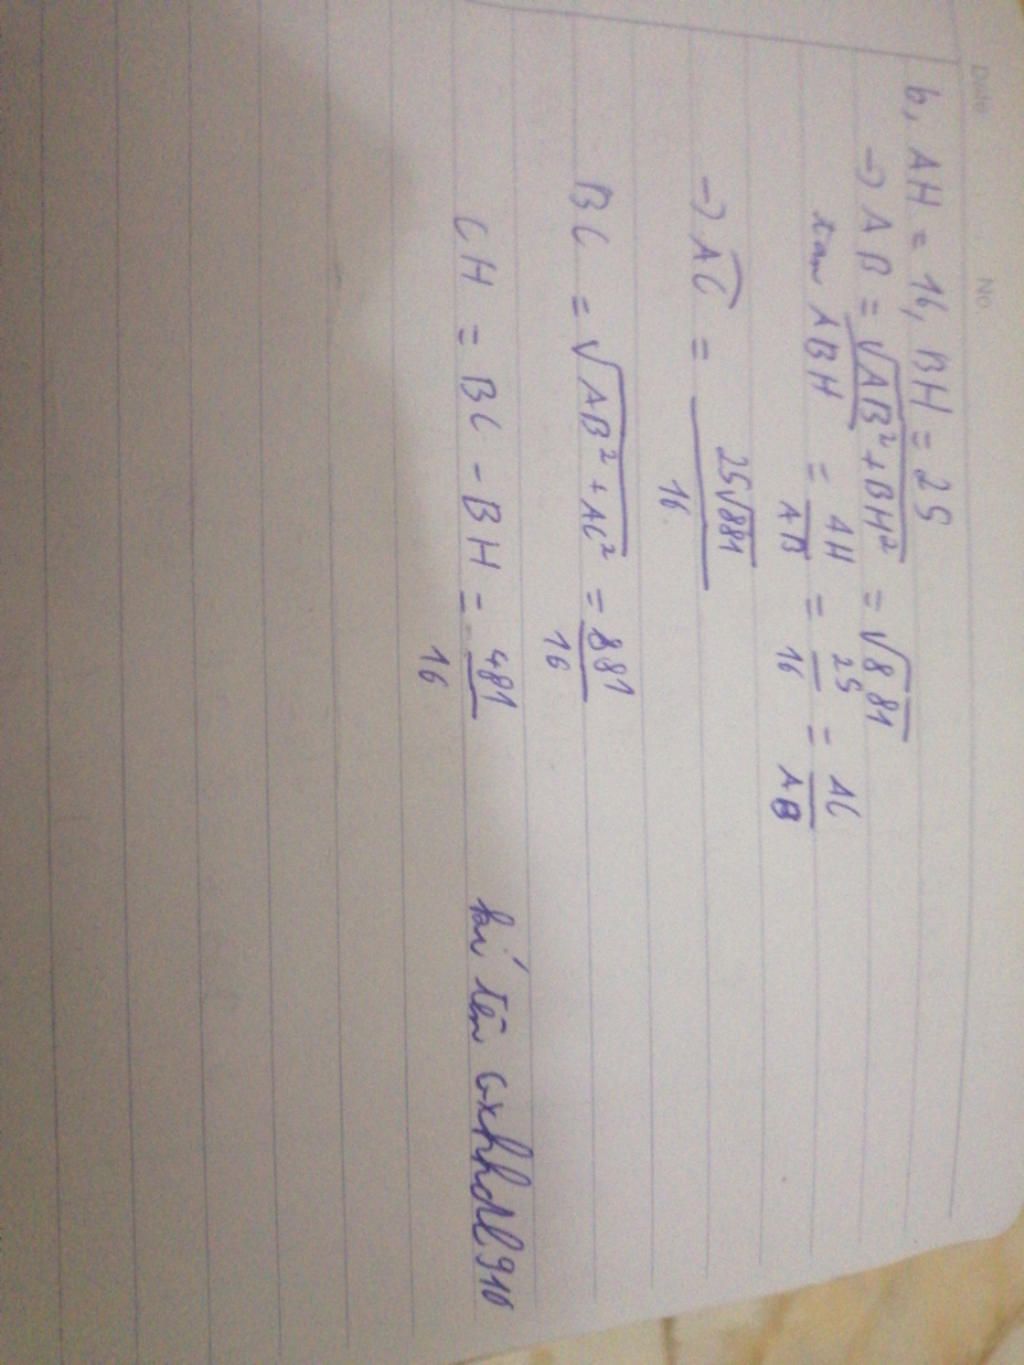 Date No.
b, AH = 16, BH = 25
→ AB = √AB² + BH² = √881
tan ABH = AH/AB = 25/16 = AC/AB
→ AC = 25√881/16
BC = √AB² + AC² = 881/16
CH = BC - BH = 481/16
tên